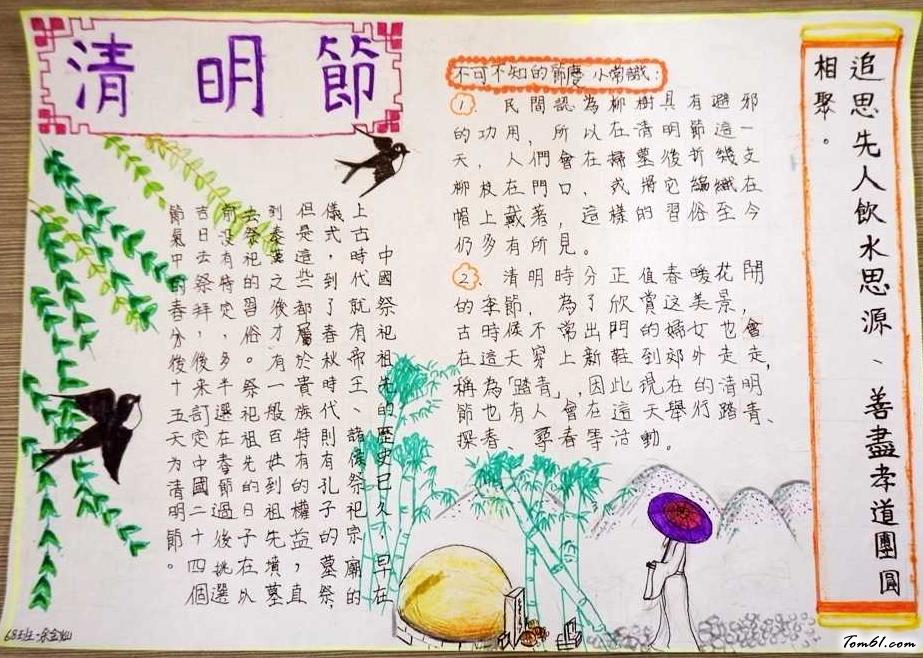 清明節
中國祭祀祖先的歷史已久，早在
上古時代就有帝王、諸侯祭祀宗廟的
儀式，到了春秋時代則有孔子的墓祭，
但是這些都屬於貴族特有的權益，直
到秦漢之後才有一般百姓到祖先墳墓
去祭祀的習俗。祭祀祖先的日子在以
前没有特定，多半選在春節過後挑選
吉日去祭拜，後來訂定中國二十四個
節氣中的春分後十五天为清明節。
不可不知的節慶小常識：
1. 民間認為柳樹具有避邪
的功用，所以在清明節這一
天，人們會在掃墓後折幾支
柳枝在門口，或將它編織在
帽上戴著，這樣的習俗至今
仍多有所見。
2. 清明時分正值春暖花開
的季節，為了欣賞这美景，
古時候不常出門的婦女也會
在這天穿上新鞋到郊外走走，
稱為「踏青」，因此現在的清明
節也有人會在這天舉行踏青、
探春 尋春等活動。
追思先人飲水思源、善盡孝道團圓
相聚。
Tom61.com